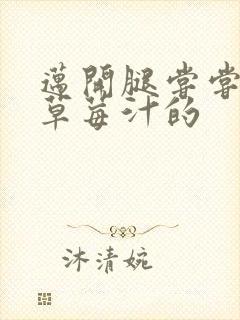 邁開腿嘗嘗
草莓汁的
沐清婉